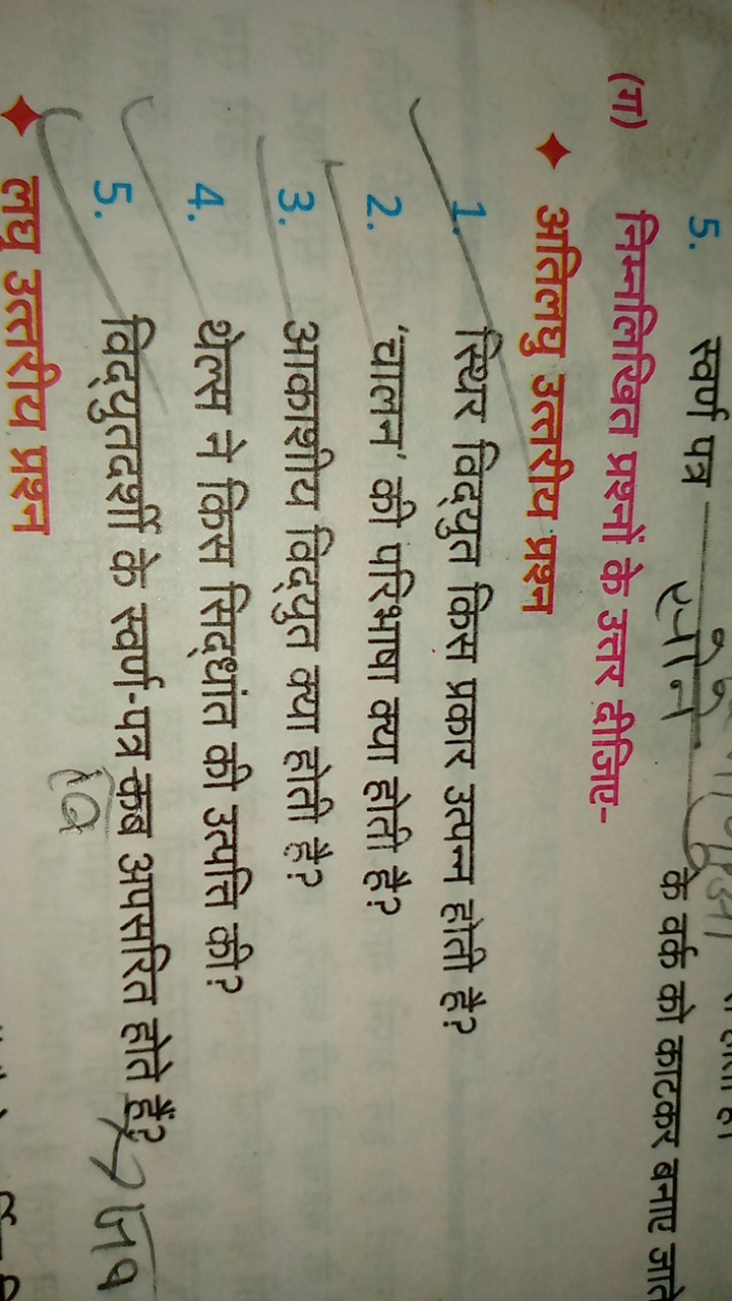 5. स्वर्ण पत्र के वर्क को काटकर बनाए जाते
(ग) निम्नलिखित प्रश्नों के उत्तर दीजिए-
अतिलघु उत्तरीय प्रश्न
1. स्थिर विद्युत किस प्रकार उत्पन्न होती है?
2. 'चालन' की परिभाषा क्या होती है?
3. आकाशीय विद्युत क्या होती है?
4. थेल्स ने किस सिद्धांत की उत्पत्ति की?
5. विद्युतदर्शी के स्वर्ण-पत्र कब अपसरित होते हैं?
लघु उत्तरीय प्रश्न